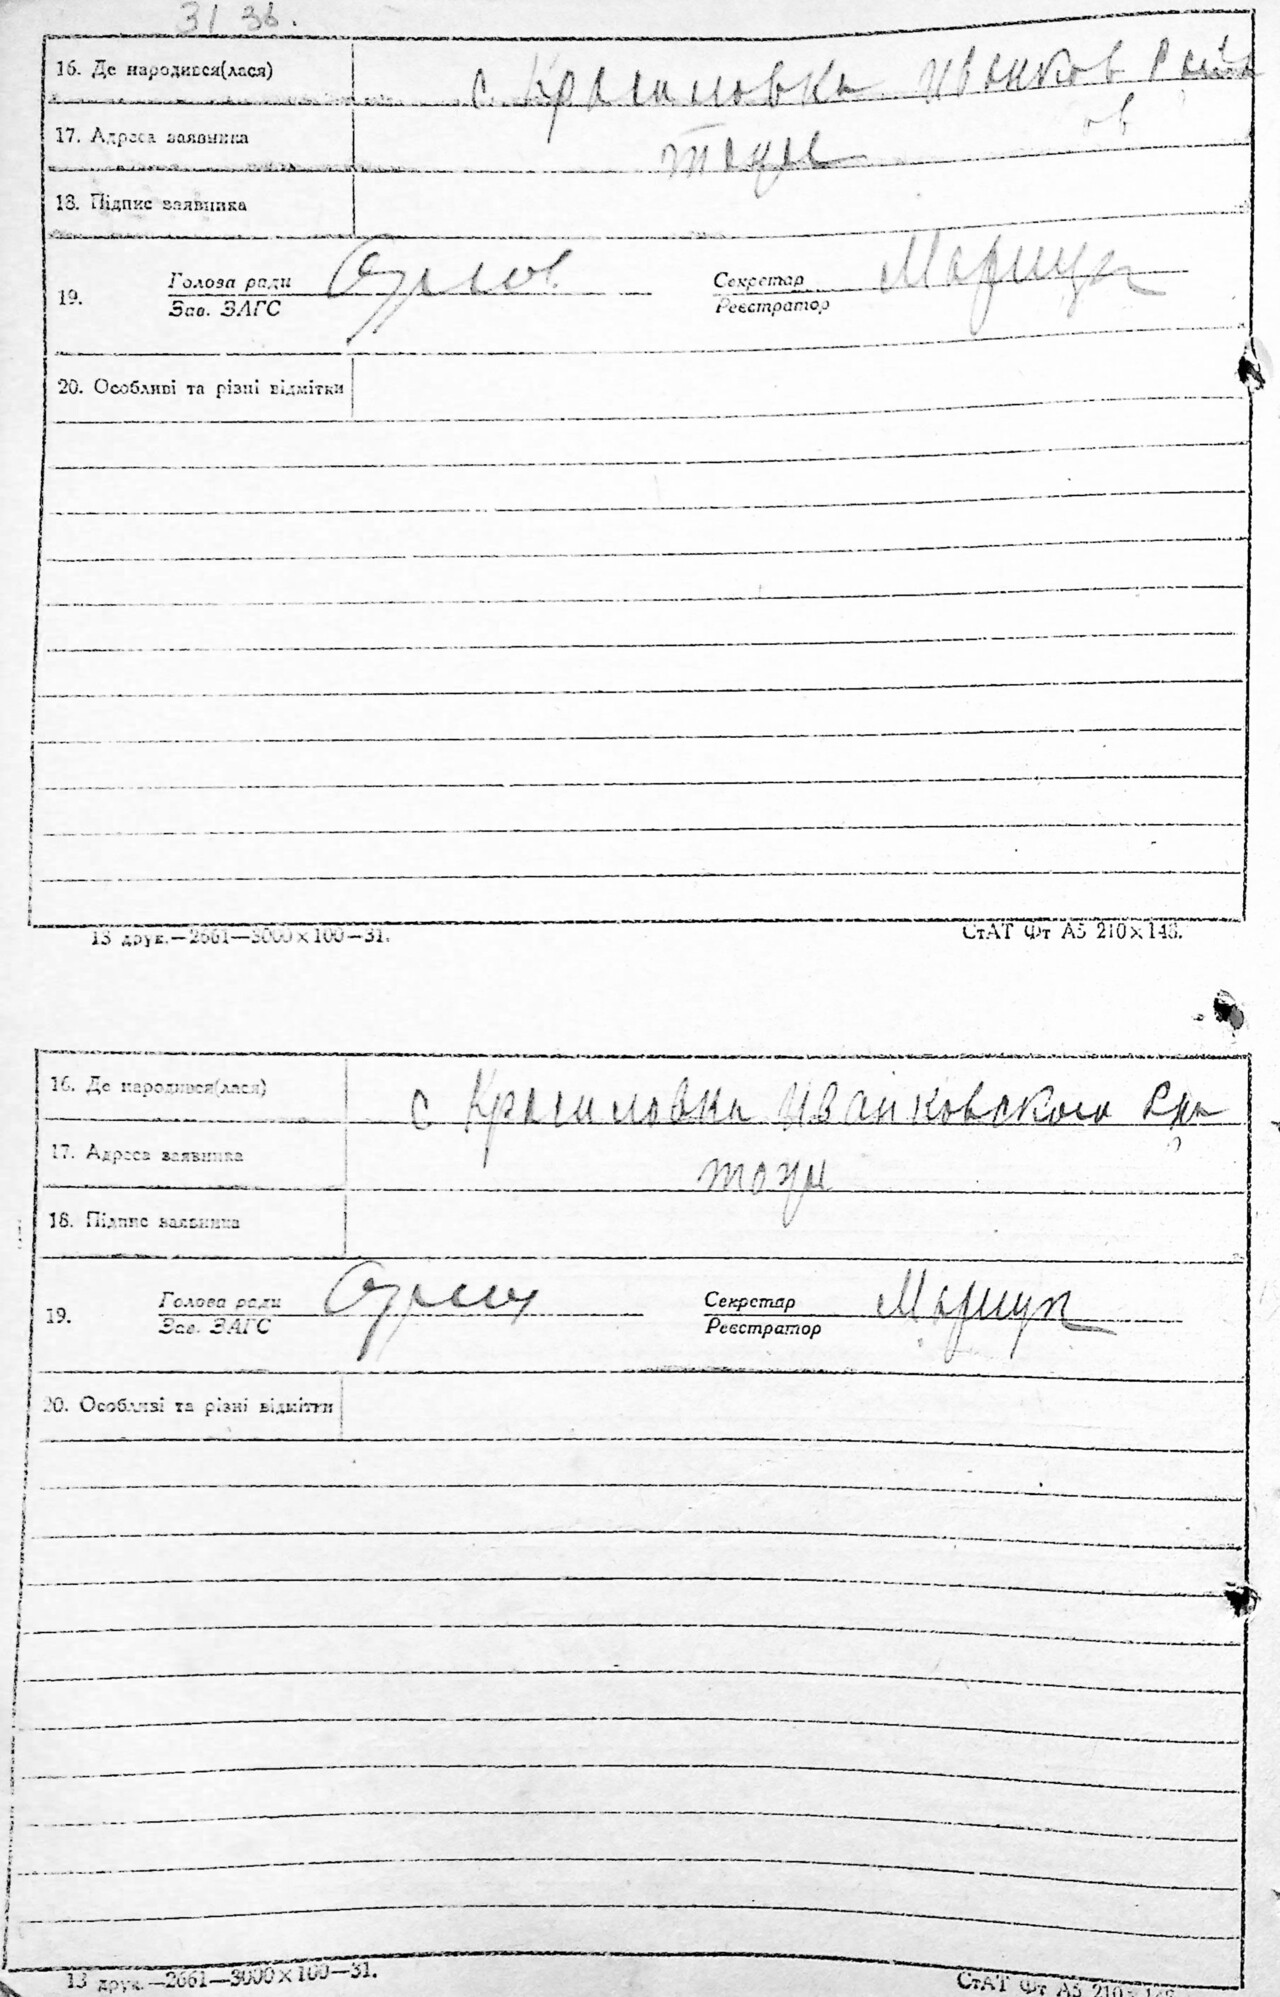 31 зв.
16. Де народився(лася) с Красиловка Иванков Района
17. Адреса заявника тоже
18. Підпис заявника
19. Голова ради Секретар
Зав. ЗАГС Реєстратор
20. Особливі та різні відмітки
13 друк.—2661—3000×100—31. СтАТ Фт А5 210×148.
16. Де народився(лася) с Красиловка Иванковского
17. Адреса заявника тоже
18. Підпис заявника
19. Голова ради Секретар
Зав. ЗАГС Реєстратор
20. Особливі та різні відмітки
13 друк.—2661—3000×100—31. СтАТ Фт А5 210×148.